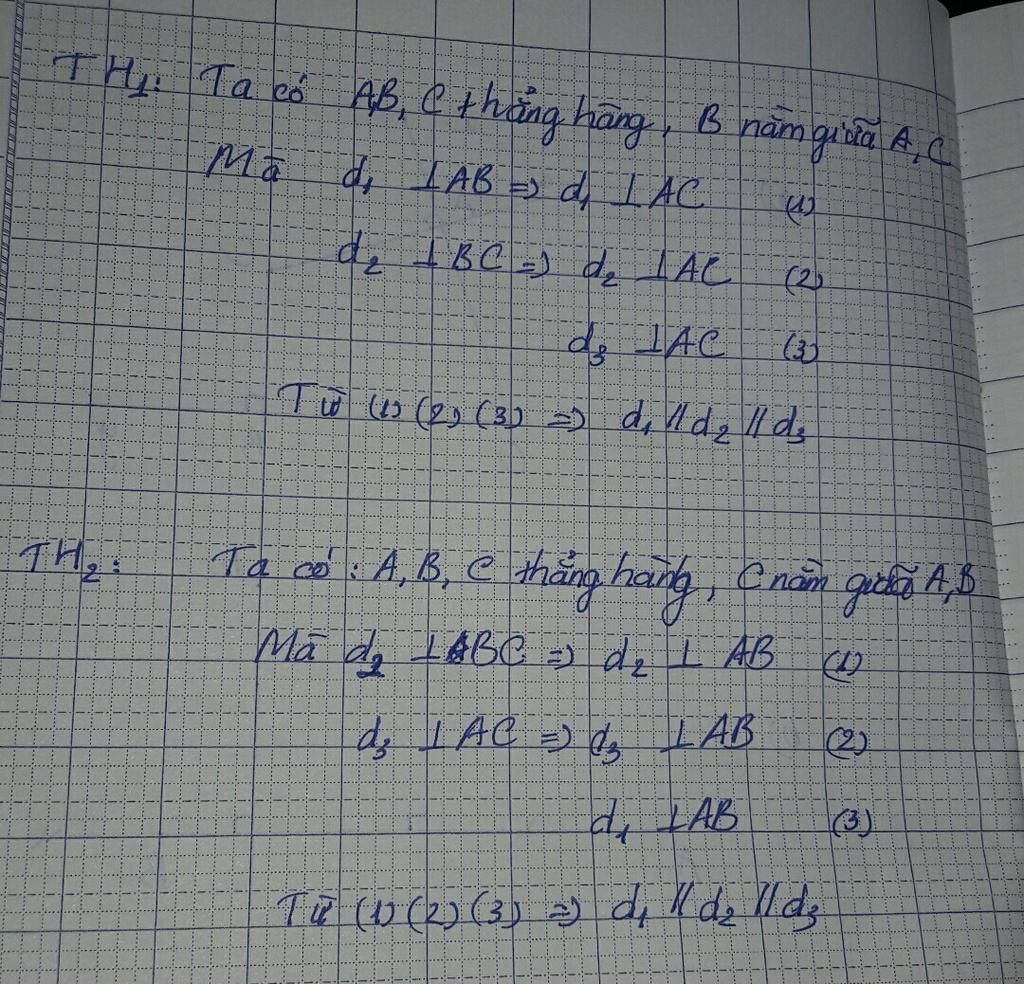 TH1: Ta có A,B, C thẳng hàng, B nằm giữa A,C
Mà d1 ⊥ AB => d1 ⊥ AC (1)
d2 ⊥ BC => d2 ⊥ AC (2)
d3 ⊥ AC (3)
Từ (1) (2) (3) => d1 // d2 // d3
TH2: Ta có: A, B, C thẳng hàng, C nằm giữa A,B
Mà d2 ⊥ BC => d2 ⊥ AB (1)
d3 ⊥ AC => d3 ⊥ AB (2)
d1 ⊥ AB (3)
Từ (1) (2) (3) => d1 // d2 // d3